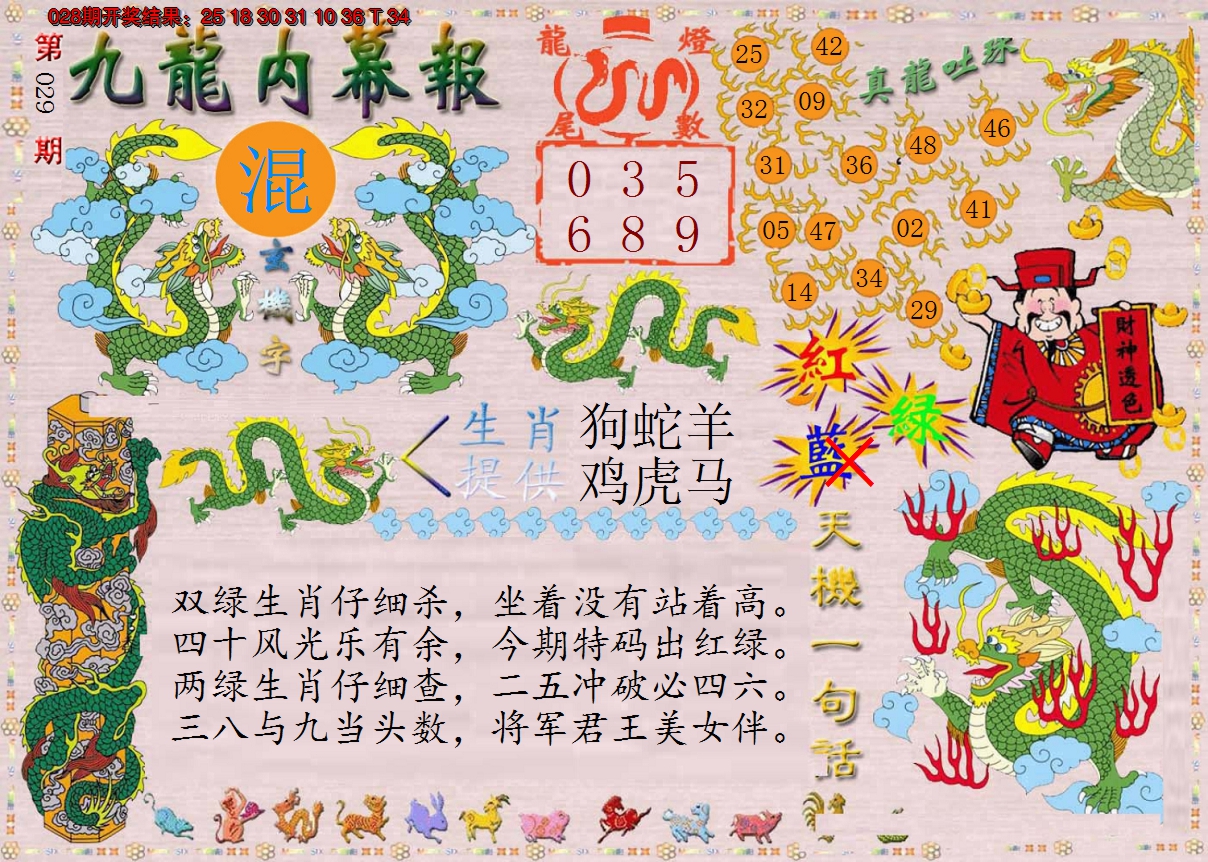 028期开奖结果：25 18 30 31 10 36 T 34
第029期
九龍内幕報
混
玄機字
龍燈尾數
0 3 5
6 8 9
真龍吐珠
25 42
32 09
48 46
31 36
41
05 47 02
34
14
29
財神透色
紅
绿
藍
生肖 狗蛇羊
提供 鸡虎马
天機一句話
双绿生肖仔细杀，坐着没有站着高。
四十风光乐有余，今期特码出红绿。
两绿生肖仔细查，二五冲破必四六。
三八与九当头数，将军君王美女伴。